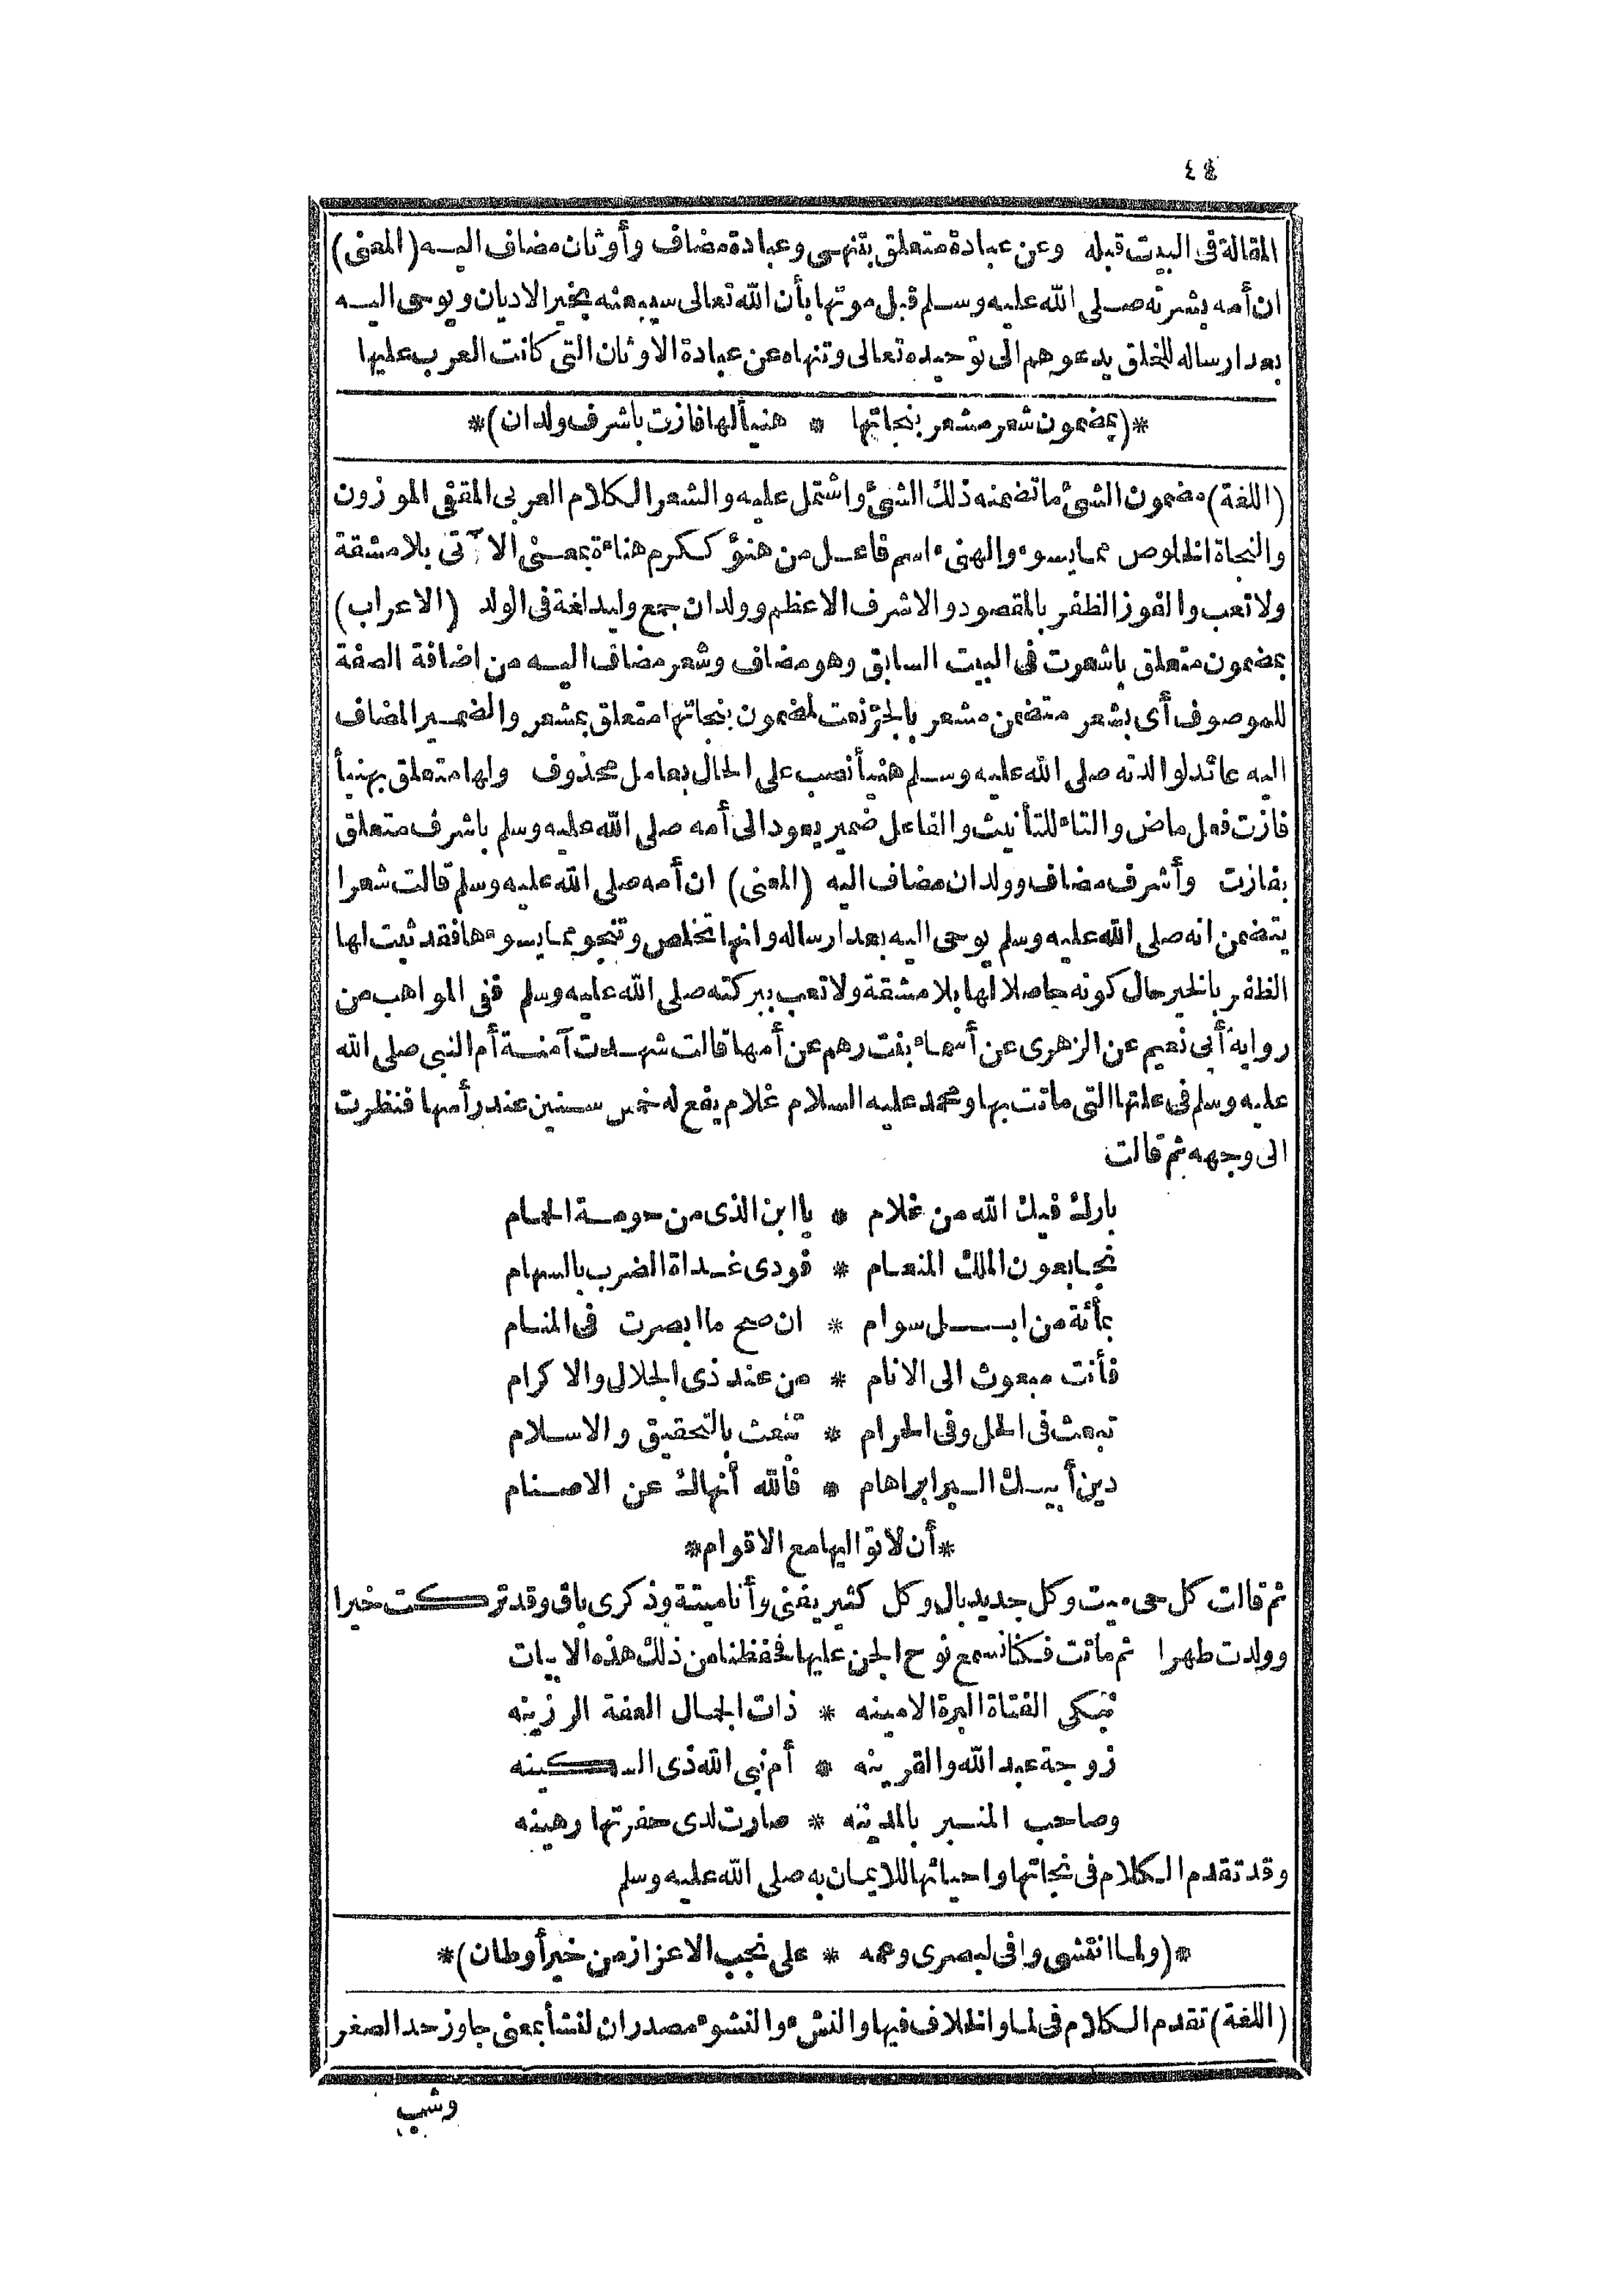 ٤٤
المقالة فى البيت قبله وعن عبادة متعلق بتنهى وعبادة مضاف وأوثان مضاف اليه (المعنى)
ان أمه بشرته صلى الله عليه وسلم قبل موتها بأن الله تعالى سيبعثه بخير الاديان ويوحى اليه
بعد ارساله للخلق يدعوهم الى توحيده تعالى وتنهاه عن عبادة الاوثان التى كانت العرب عليها
*(بمضمون شعر مشعر بنجاتها * هنيأ لها فازت باشرف ولدان)*
(اللغة) مضمون الشئ ما تضمنه ذلك الشئ واشتمل عليه والشعر الكلام العربى المقفى الموزون
والنجاة الخلوص مما يسوء والهنىء اسم فاعل من هنؤ ككرم هناءة بمعنى الآتى بلا مشقة
ولا تعب والفوز الظفر بالمقصود والاشرف الاعظم وولدان جمع وليد لغة فى الولد (الاعراب)
بمضمون متعلق باشعرت فى البيت السابق وهو مضاف وشعر مضاف اليه من اضافة الصفة
للموصوف أى بشعر متضمن مشعر بالجر نعت لمضمون بنجاتها متعلق بمشعر والضمير المضاف
اليه عائد لوالدته صلى الله عليه وسلم هنيأ نصب على الحال بعامل محذوف ولها متعلق بهنيأ
فازت فعل ماض والتاء للتأنيث والفاعل ضمير يعود الى أمه صلى الله عليه وسلم باشرف متعلق
بفازت وأشرف مضاف وولدان مضاف اليه (المعنى) ان أمه صلى الله عليه وسلم قالت شعرا
يتضمن انه صلى الله عليه وسلم يوحى اليه بعد ارساله وانها تخلص وتنجو مما يسوءها فقد ثبت لها
الظفر بالخير حال كونه حاصلا لها بلا مشقة ولا تعب ببركته صلى الله عليه وسلم ففى المواهب من
رواية أبى نعيم عن الزهرى عن أسماء بنت رهم عن أمها قالت شهدت آمنة أم النبى صلى الله
عليه وسلم فى علتها التى ماتت بها ومحمد عليه السلام غلام يفع له خمس سنين عند رأسها فنظرت
الى وجهه ثم قالت
بارك فيك الله من غلام * يا ابن الذى من حومة الحمام
نجا بعون الملك المنعام * فودى غداة الضرب بالسهام
بمائة من ابل سوام * ان صح ما ابصرت فى المنام
فأنت مبعوث الى الانام * من عند ذى الجلال والاكرام
تبعث فى الحل وفى الحرام * تبعث بالتحقيق والاسلام
دين أبيك البر ابراهام * فالله أنهاك عن الاصنام
*أن لا تواليها مع الاقوام*
ثم قالت كل حى ميت وكل جديد بال وكل كثير يفنى وأنا ميتة وذكرى باق وقد تركت خيرا
وولدت طهرا ثم ماتت فكنا نسمع نوح الجن عليها فحفظنا من ذلك هذه الابيات
نبكى الفتاة البرة الامينه * ذات الجمال العفة الرزينه
زوجة عبد الله والقرينه * أم نبى الله ذى السكينه
وصاحب المنبر بالمدينه * صارت لدى حفرتها رهينه
وقد تقدم الكلام فى نجاتها واحيائها للايمان به صلى الله عليه وسلم
*(ولما انتشى وافى لبصرى وعمه * على نجب الاعزاز من خير أوطان)*
(اللغة) تقدم الكلام فى لما والخلاف فيها والنشء والنشوء مصدران لنشأ بمعنى جاوز حد الصغر
وشب